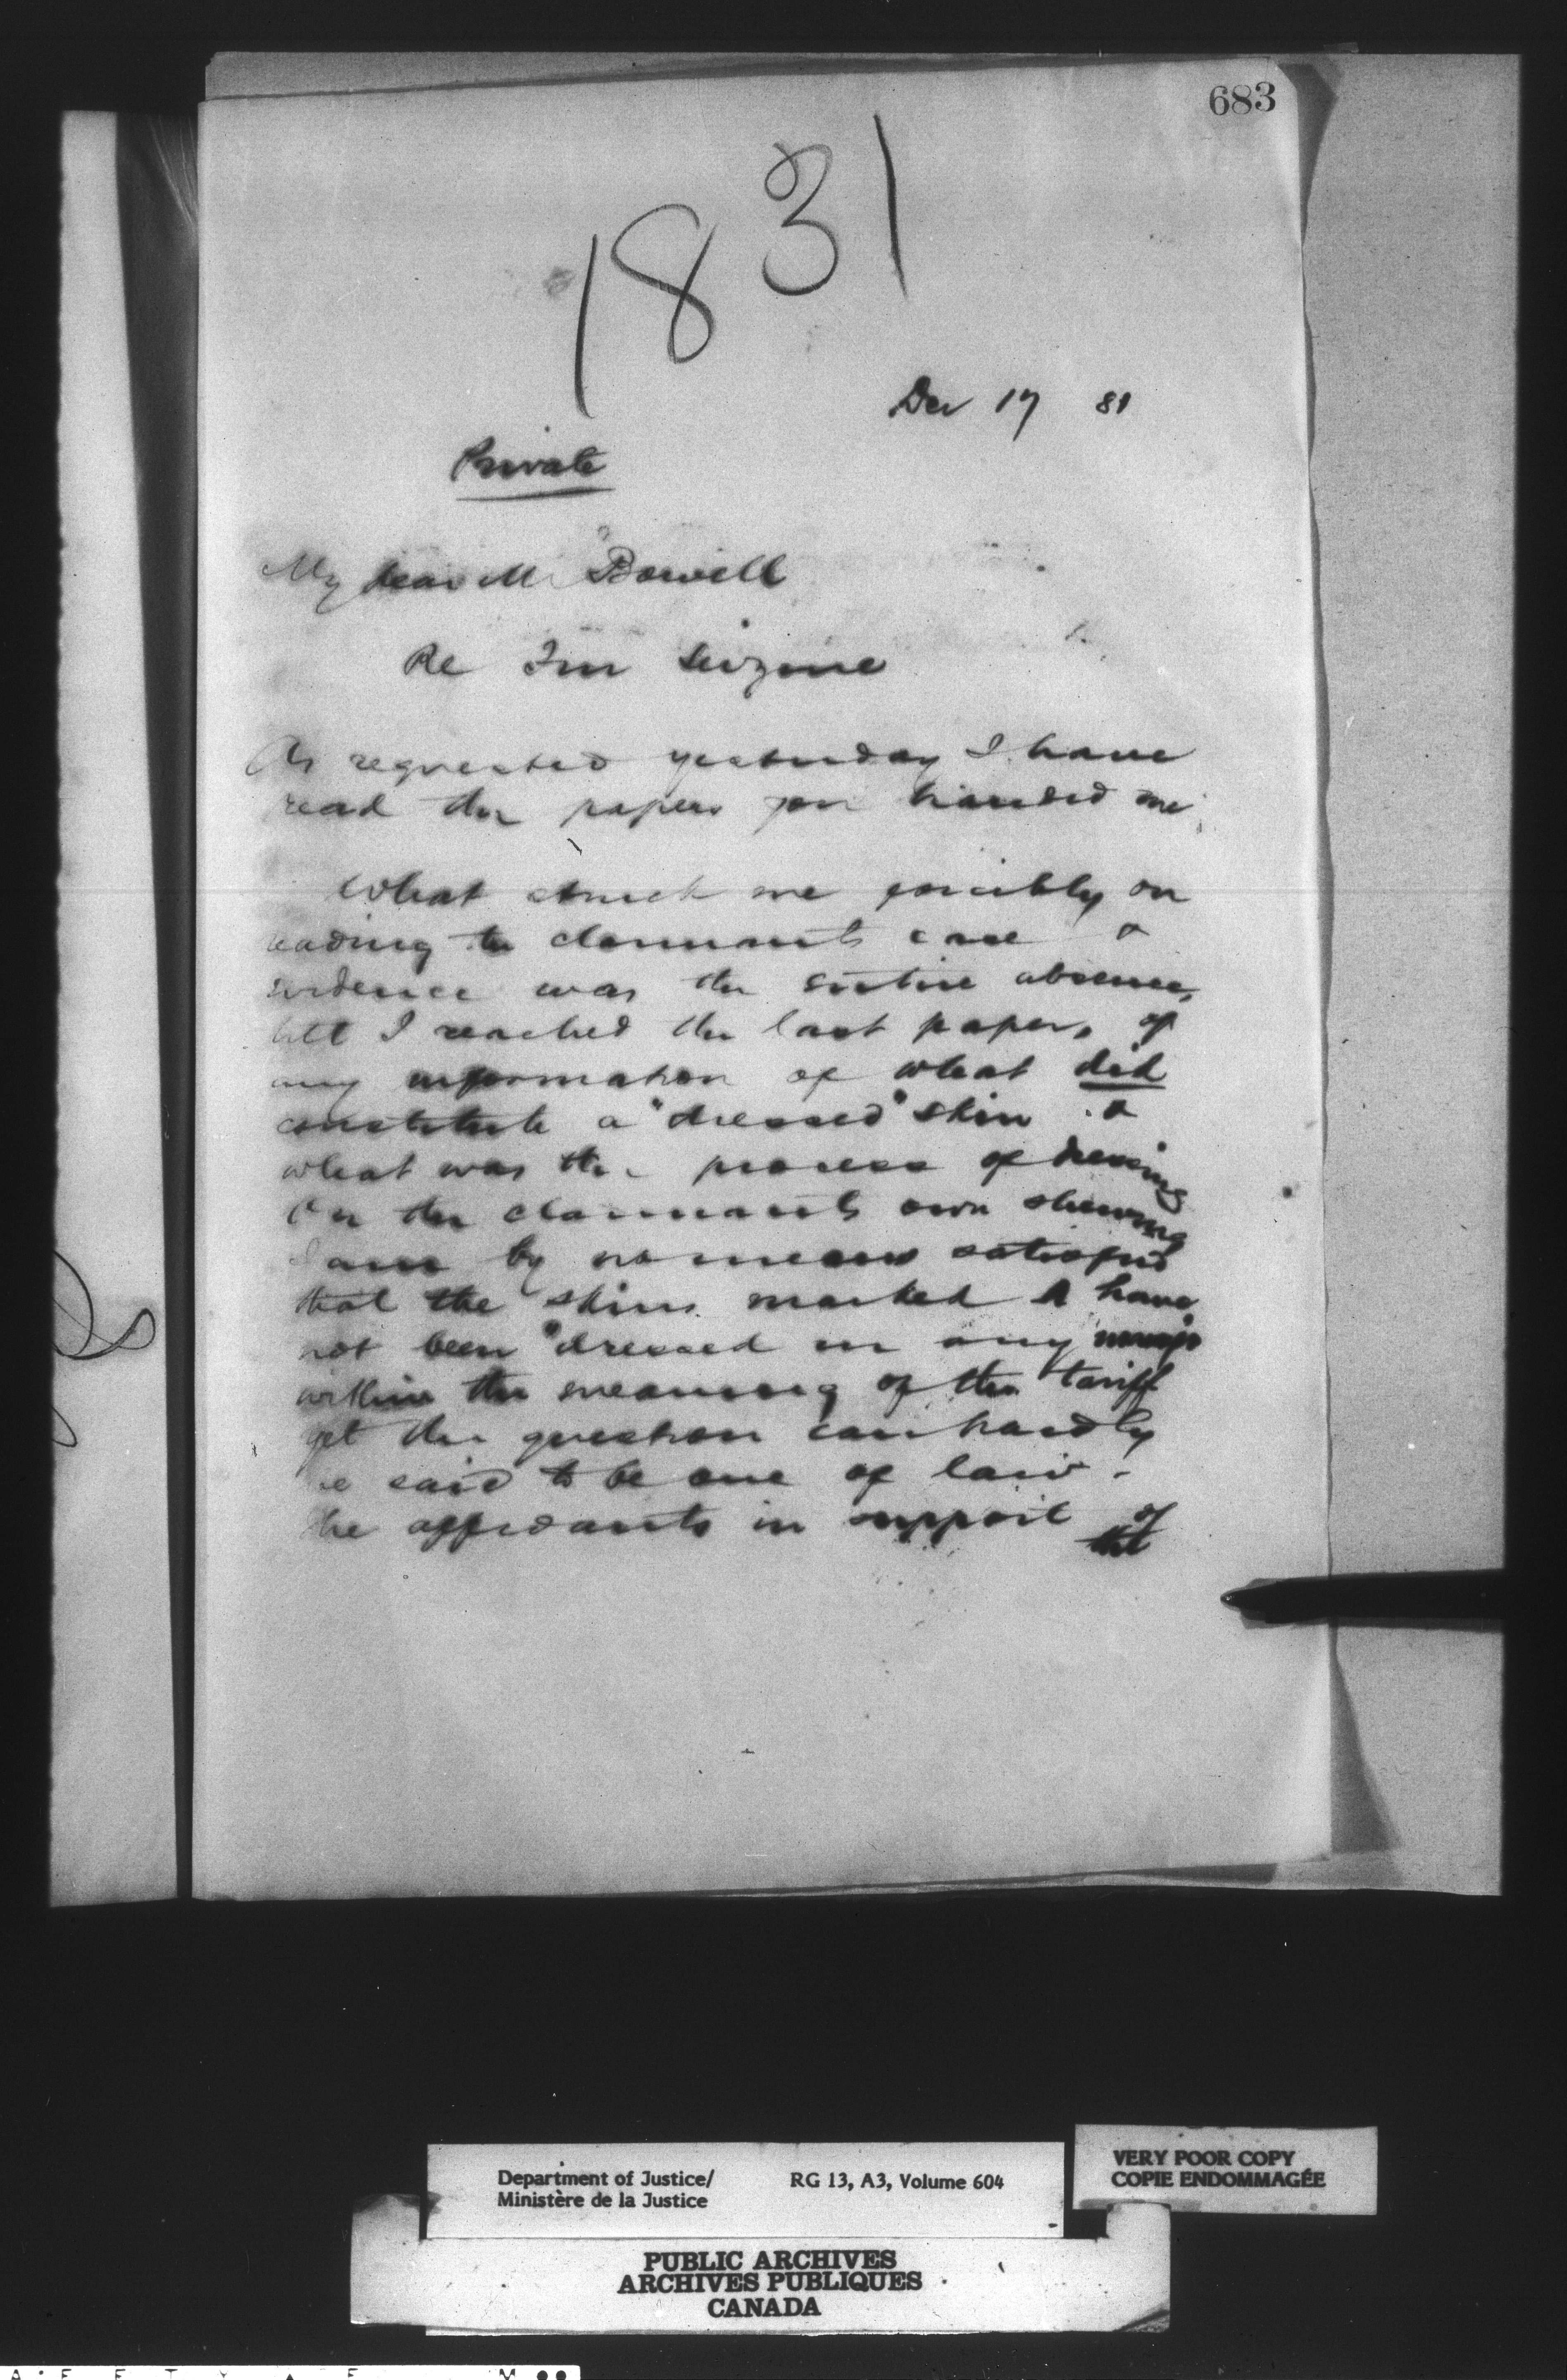 683
1831
Dec 17 81
Private
My dear Mr Bowell
Re Fur Seizure
As requested yesterday I have
read the papers you handed me
What struck me forcibly on
reading the claimants case &
evidence was the entire absence,
till I reached the last paper, of
any information of what did
constitute a "dressed" skin &
what was the process of dressing
On the claimants own shewing
I am by no means satisfied
that the skins marked A have
not been "dressed in any
within the meaning of the tariff
yet the question can hardly
be said to be one of law.
The affidavits in support of
the
Department of Justice/
Ministère de la Justice
RG 13, A3, Volume 604
VERY POOR COPY
COPIE ENDOMMAGÉE
PUBLIC ARCHIVES
ARCHIVES PUBLIQUES
CANADA